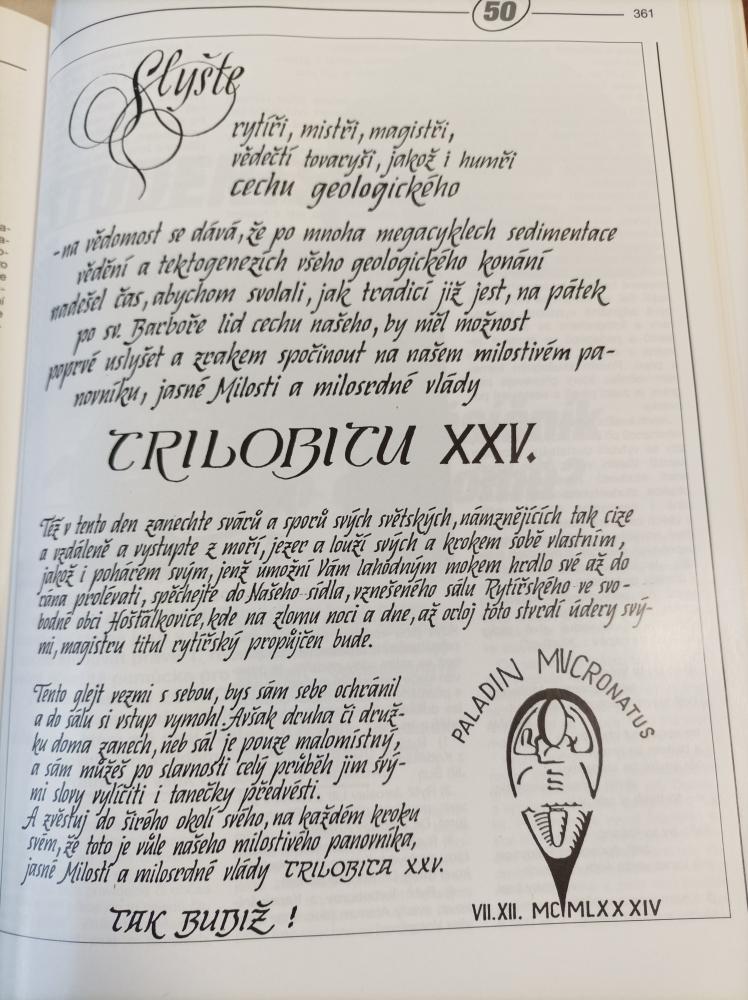 50
361
Slyšte
rytíři, mistři, magistři,
vědečtí tovaryši, jakož i humři
cechu geologického
-na vědomost se dává, že po mnoha megacyklech sedimentace
vědění a tektogenezích všeho geologického konání
nadešel čas, abychom svolali, jak tradicí již jest, na pátek
po sv. Barboře lid cechu našeho, by měl možnost
poprvé uslyšet a zrakem spočinout na našem milostivém pa-
novníku, jasné Milosti a milosrdné vlády
TRILOBITU XXV.
Též v tento den zanechte svárů a sporů svých světských, námznějících tak cize
a vzdáleně a vystupte z moří, jezer a louží svých a krokem sobě vlastním,
jakož i pohárem svým, jenž umožní Vám lahodným mokem hrdlo své až do
rána prolévati, spěchejte do Našeho sídla, vznešeného sálu Rytířského ve svo-
bodné obci Hošťálkovice, kde na zlomu noci a dne, až orloj toto stvrdí údery svý-
mi, magistru titul rytířský propůjčen bude.
Tento glejt vezmi s sebou, bys sám sebe ochránil
a do sálu si vstup vymohl. Avšak druha či druž-
ku doma zanech, neb sál je pouze malomístný,
a sám můžeš po slavnosti celý průběh jim svý-
mi slovy vylíčiti i tanečky předvésti.
A zvěstuj do širého okolí svého, na každém kroku
svém, že toto je vůle našeho milostivého panovníka,
jasné Milosti a milosrdné vlády TRILOBITA XXV.
TAK BUDIŽ !
PALADIN MUCRONATUS
VII.XII. MCMLXXXIV